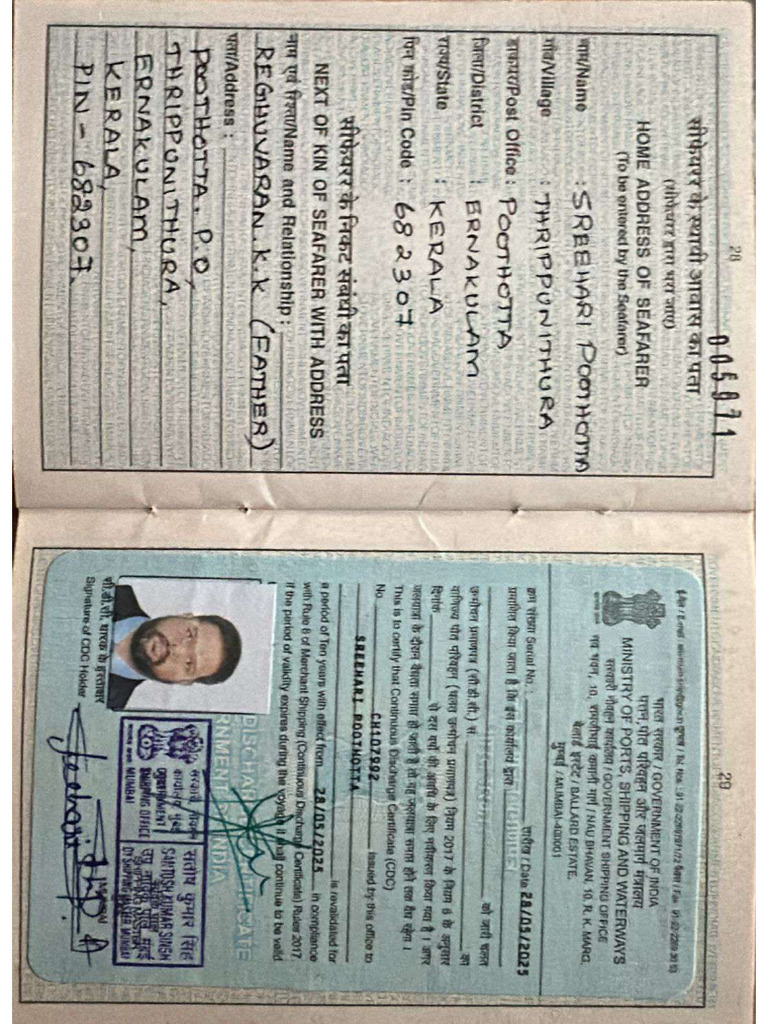 28
005071
सीफेयरर के स्थायी आवास का पता
(सीफेयरर द्वारा भरा जाए)
HOME ADDRESS OF SEAFARER
(To be entered by the Seafarer)
नाम/Name : SREEHARI POOTHOTTA
गाँव/Village : THRIPPUNITHURA
डाकघर/Post Office : POOTHOTTA
जिला/District : ERNAKULAM
राज्य/State : KERALA
पिन कोड/Pin Code : 682307
सीफेयरर के निकट संबंधी का पता
NEXT OF KIN OF SEAFARER WITH ADDRESS
नाम एवं रिश्ता/Name and Relationship :
REGHUVARAN.K.K (FATHER)
पता/Address :
POOTHOTTA. P.O,
THRIPPUNITHURA,
ERNAKULAM,
KERALA,
PIN - 682307.
29
भारत सरकार / GOVERNMENT OF INDIA
पत्तन, पोत परिवहन और जलमार्ग मंत्रालय
MINISTRY OF PORTS, SHIPPING AND WATERWAYS
सरकारी नौवहन कार्यालय / GOVERNMENT SHIPPING OFFICE
नव भवन, 10, रामजीभाई कमानी मार्ग / NAU BHAVAN, 10, R. K. MARG,
बेलार्ड इस्टेट / BALLARD ESTATE,
मुंबई / MUMBAI-400001
क्रम संख्या Serial No. : तारीख / Date 28/05/2025
प्रमाणित किया जाता है कि इस कार्यालय द्वारा
उन्मोचन प्रमाणपत्र (सी.डी.सी.) सं. को जारी सतत
वाणिज्य पोत परिवहन (सतत उन्मोचन प्रमाणपत्र) नियम 2017 के नियम 6 के अनुसार
दिनांक से दस वर्षों की अवधि के लिए नवीकरण किया गया है। अगर
जलयात्रा के दौरान वैधता समाप्त हो जाती है तो यह जलयात्रा समाप्त होने तक वैध रहेगा।
This is to certify that Continuous Discharge Certificate (CDC)
No. CH107992 issued by this office to
SREEHARI POOTHOTTA
is revalidated for
a period of Ten years with effect from 28/05/2025 in compliance
with Rule 6 of Merchant Shipping (Continuous Discharge Certificate) Rules 2017.
If the period of validity expires during the voyage it shall continue to be valid
सी.डी.सी. धारक के हस्ताक्षर
Signature of CDC Holder
GOVERNMENT
SHIPPING OFFICE
MUMBAI
संतोष कुमार सिंह
SANTOSH KUMAR SINGH
SHIPPING MASTER
MUMBAI